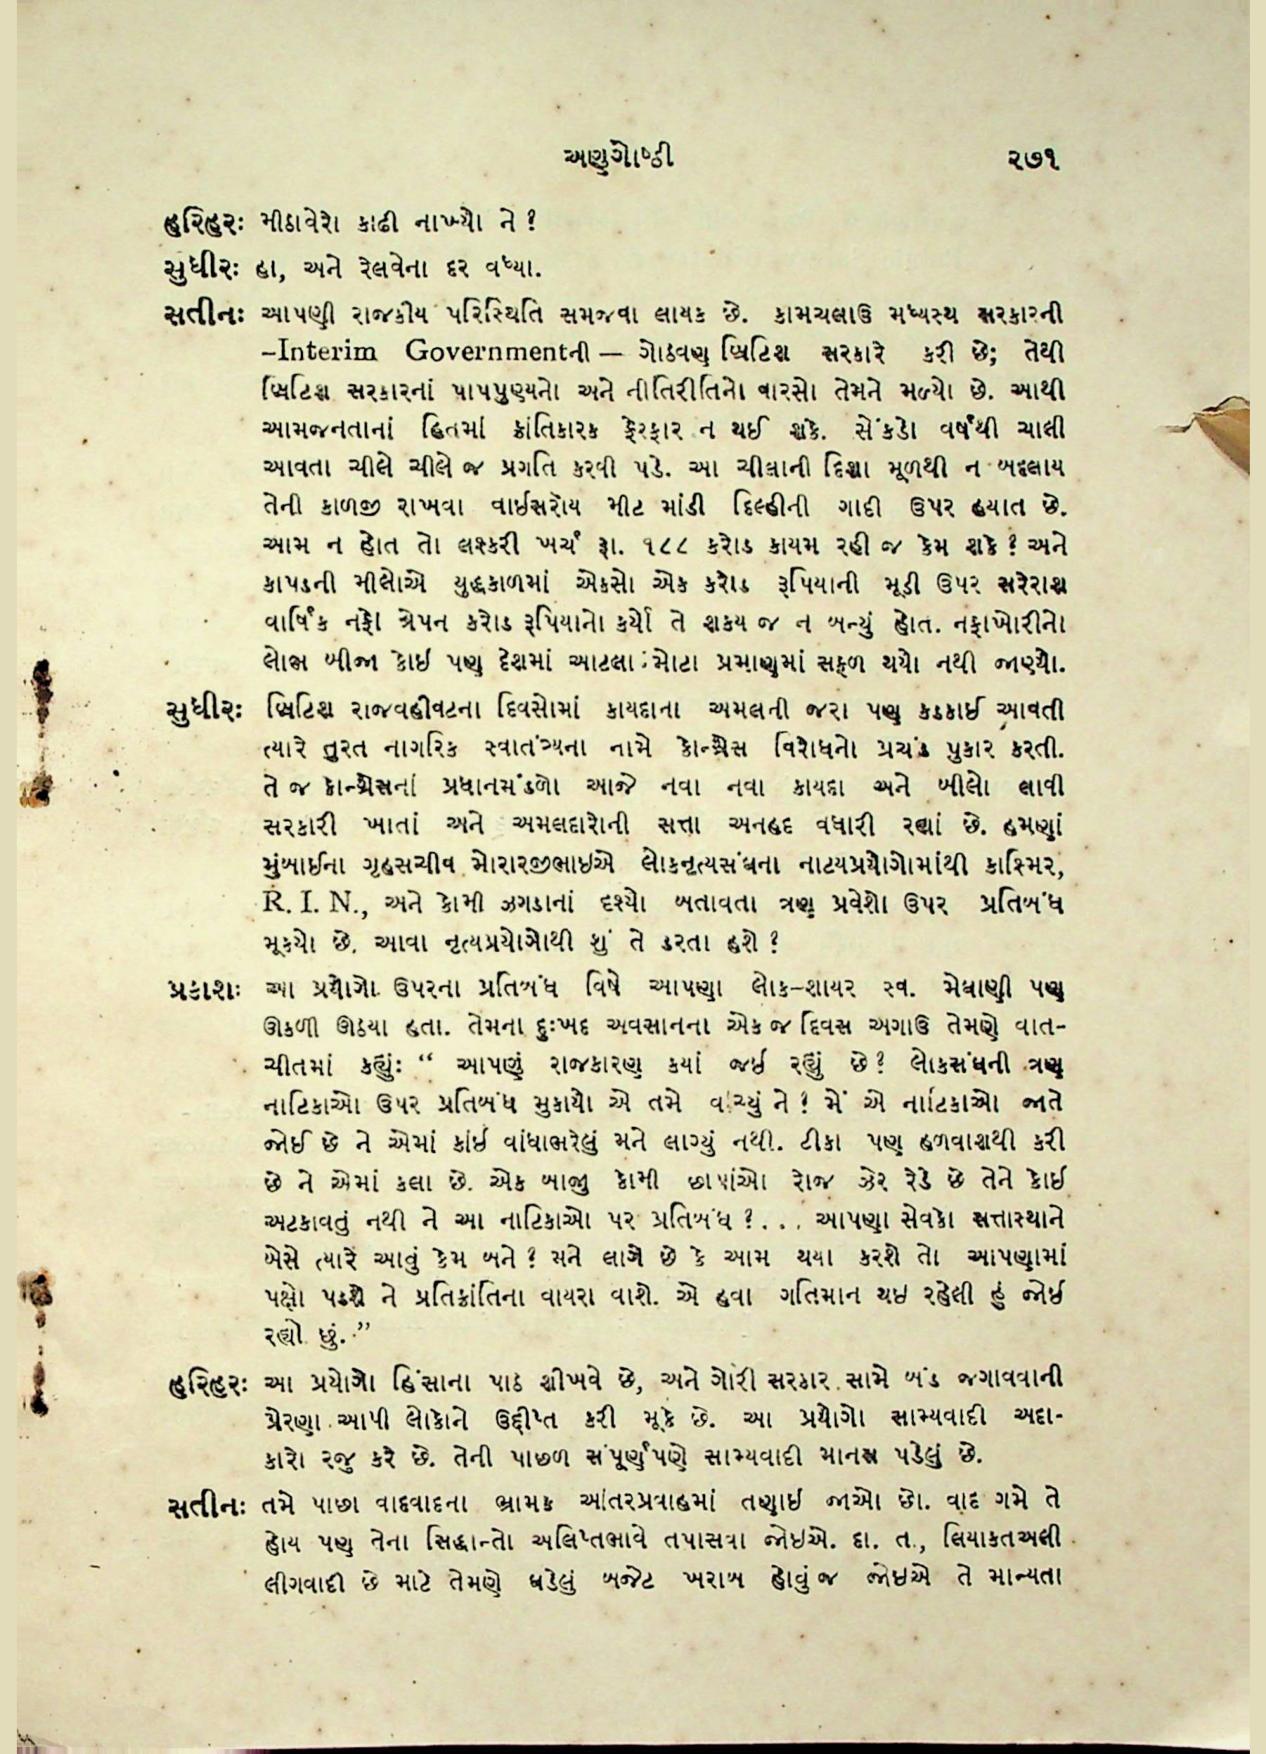 અણુગોષ્ઠી ૨૭૧
હરિહરઃ મીઠાવેરો કાઢી નાખ્યો ને ?
સુધીરઃ હા, અને રેલવેના દર વધ્યા.
સતીનઃ આપણી રાજકીય પરિસ્થિતિ સમજવા લાયક છે. કામચલાઉ મધ્યસ્થ સરકારની
-Interim Governmentની — ગોઠવણ બ્રિટિશ સરકારે કરી છે; તેથી
બ્રિટિશ સરકારનાં પાપપુણ્યનો અને નીતિરીતિનો વારસો તેમને મળ્યો છે. આથી
આમજનતાનાં હિતમાં ક્રાંતિકારક ફેરફાર ન થઈ શકે. સેંકડો વર્ષથી ચાલી
આવતા ચીલે ચીલે જ પ્રગતિ કરવી પડે. આ ચીલાની દિશા મૂળથી ન બદલાય
તેની કાળજી રાખવા વાઇસરૉય મીટ માંડી દિલ્હીની ગાદી ઉપર હયાત છે.
આમ ન હોત તો લશ્કરી ખર્ચ રૂા. ૧૮૮ કરોડ કાયમ રહી જ કેમ શકે ? અને
કાપડની મીલોએ યુદ્ધકાળમાં એકસો એક કરોડ રૂપિયાની મૂડી ઉપર સરેરાશ
વાર્ષિક નફો ત્રેપન કરોડ રૂપિયાનો કર્યો તે શક્ય જ ન બન્યું હોત. નફાખોરીનો
લોભ બીજા કોઇ પણ દેશમાં આટલા મોટા પ્રમાણમાં સફળ થયો નથી જાણ્યો.
સુધીરઃ બ્રિટિશ રાજવહીવટના દિવસોમાં કાયદાના અમલની જરા પણ કડકાઈ આવતી
ત્યારે તુરત નાગરિક સ્વાતંત્ર્યના નામે કોન્ગ્રેસ વિરોધનો પ્રચંડ પુકાર કરતી.
તે જ કોન્ગ્રેસનાં પ્રધાનમંડળો આજે નવા નવા કાયદા અને બીલો લાવી
સરકારી ખાતાં અને અમલદારોની સત્તા અનહદ વધારી રહ્યાં છે. હમણાં
મુંબાઈના ગૃહસચીવ મોરારજીભાઇએ લોકનૃત્યસંઘના નાટયપ્રયોગોમાંથી કાશ્મિર,
R. I. N., અને કોમી ઝગડાનાં દૃશ્યો બતાવતા ત્રણ પ્રવેશો ઉપર પ્રતિબંધ
મૂકયો છે. આવા નૃત્યપ્રયોગોથી શું તે ડરતા હશે ?
પ્રકાશઃ આ પ્રયોગો ઉપરના પ્રતિબંધ વિષે આપણા લોક-શાયર સ્વ. મેઘાણી પણ
ઊકળી ઊઠયા હતા. તેમના દુઃખદ અવસાનના એક જ દિવસ અગાઉ તેમણે વાત-
ચીતમાં કહ્યુંઃ “ આપણું રાજકારણ કયાં જઈ રહ્યું છે ? લોકસંઘની ત્રણ
નાટિકાઓ ઉપર પ્રતિબંધ મુકાયો એ તમે વાંચ્યું ને ? મેં એ નાટિકાઓ જાતે
જોઈ છે ને એમાં કાંઈ વાંધાભરેલું મને લાગ્યું નથી. ટીકા પણ હળવાશથી કરી
છે ને એમાં કલા છે. એક બાજુ કોમી છાપાંઓ રોજ ઝેર રેડે છે તેને કોઇ
અટકાવતું નથી ને આ નાટિકાઓ પર પ્રતિબંધ ?... આપણા સેવકો સત્તાસ્થાને
બેસે ત્યારે આવું કેમ બને ? મને લાગે છે કે આમ થયા કરશે તો આપણામાં
પક્ષો પડશે ને પ્રતિક્રાંતિના વાયરા વાશે. એ હવા ગતિમાન થઇ રહેલી હું જોઈ
રહ્યો છું. ”
હરિહરઃ આ પ્રયોગો હિંસાના પાઠ શીખવે છે, અને ગોરી સરકાર સામે બંડ જગાવવાની
પ્રેરણા આપી લોકોને ઉદ્દીપ્ત કરી મૂકે છે. આ પ્રયોગો સામ્યવાદી અદા-
કારો રજુ કરે છે. તેની પાછળ સંપૂર્ણપણે સામ્યવાદી માનસ પડેલું છે.
સતીનઃ તમે પાછા વાદવાદના ભ્રામક આંતરપ્રવાહમાં તણાઇ જાઓ છો. વાદ ગમે તે
હોય પણ તેના સિદ્ધાન્તો અલિપ્તભાવે તપાસવા જોઇએ. દા. ત., લિયાકતઅલી
લીગવાદી છે માટે તેમણે ઘડેલું બજેટ ખરાબ હોવું જ જોઇએ તે માન્યતા